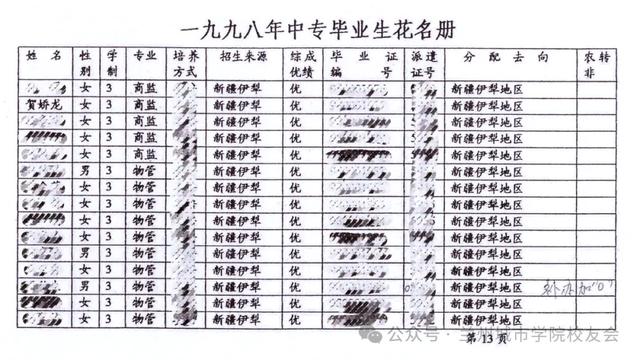 一九九八年中专毕业生花名册
姓 名 性 学 专业 培养 招生来源 综成 毕 业 证 派遣 分 配 去 向 农转
别 制 方式 优绩 编 号 证号 非
女 3 商监 新疆伊犁 优 新疆伊犁地区
贺娇龙 女 3 商监 新疆伊犁 优 新疆伊犁地区
女 3 商监 新疆伊犁 优 新疆伊犁地区
女 3 商监 新疆伊犁 优 新疆伊犁地区
女 3 商监 新疆伊犁 优 新疆伊犁地区
男 3 物管 新疆伊犁 优 新疆伊犁地区
女 3 物管 新疆伊犁 优 新疆伊犁地区
女 3 物管 新疆伊犁 优 新疆伊犁地区
女 3 物管 新疆伊犁 优 新疆伊犁地区
女 3 物管 新疆伊犁 优 新疆伊犁地区
男 3 物管 新疆伊犁 优 新疆伊犁地区
女 3 物管 新疆伊犁 优 新疆伊犁地区
男 3 物管 新疆伊犁 优 新疆伊犁地区 补办加"0"
女 3 物管 新疆伊犁 优 新疆伊犁地区
女 3 物管 新疆伊犁 优 新疆伊犁地区
第 13 页
公众号 · 兰州城市学院校友会